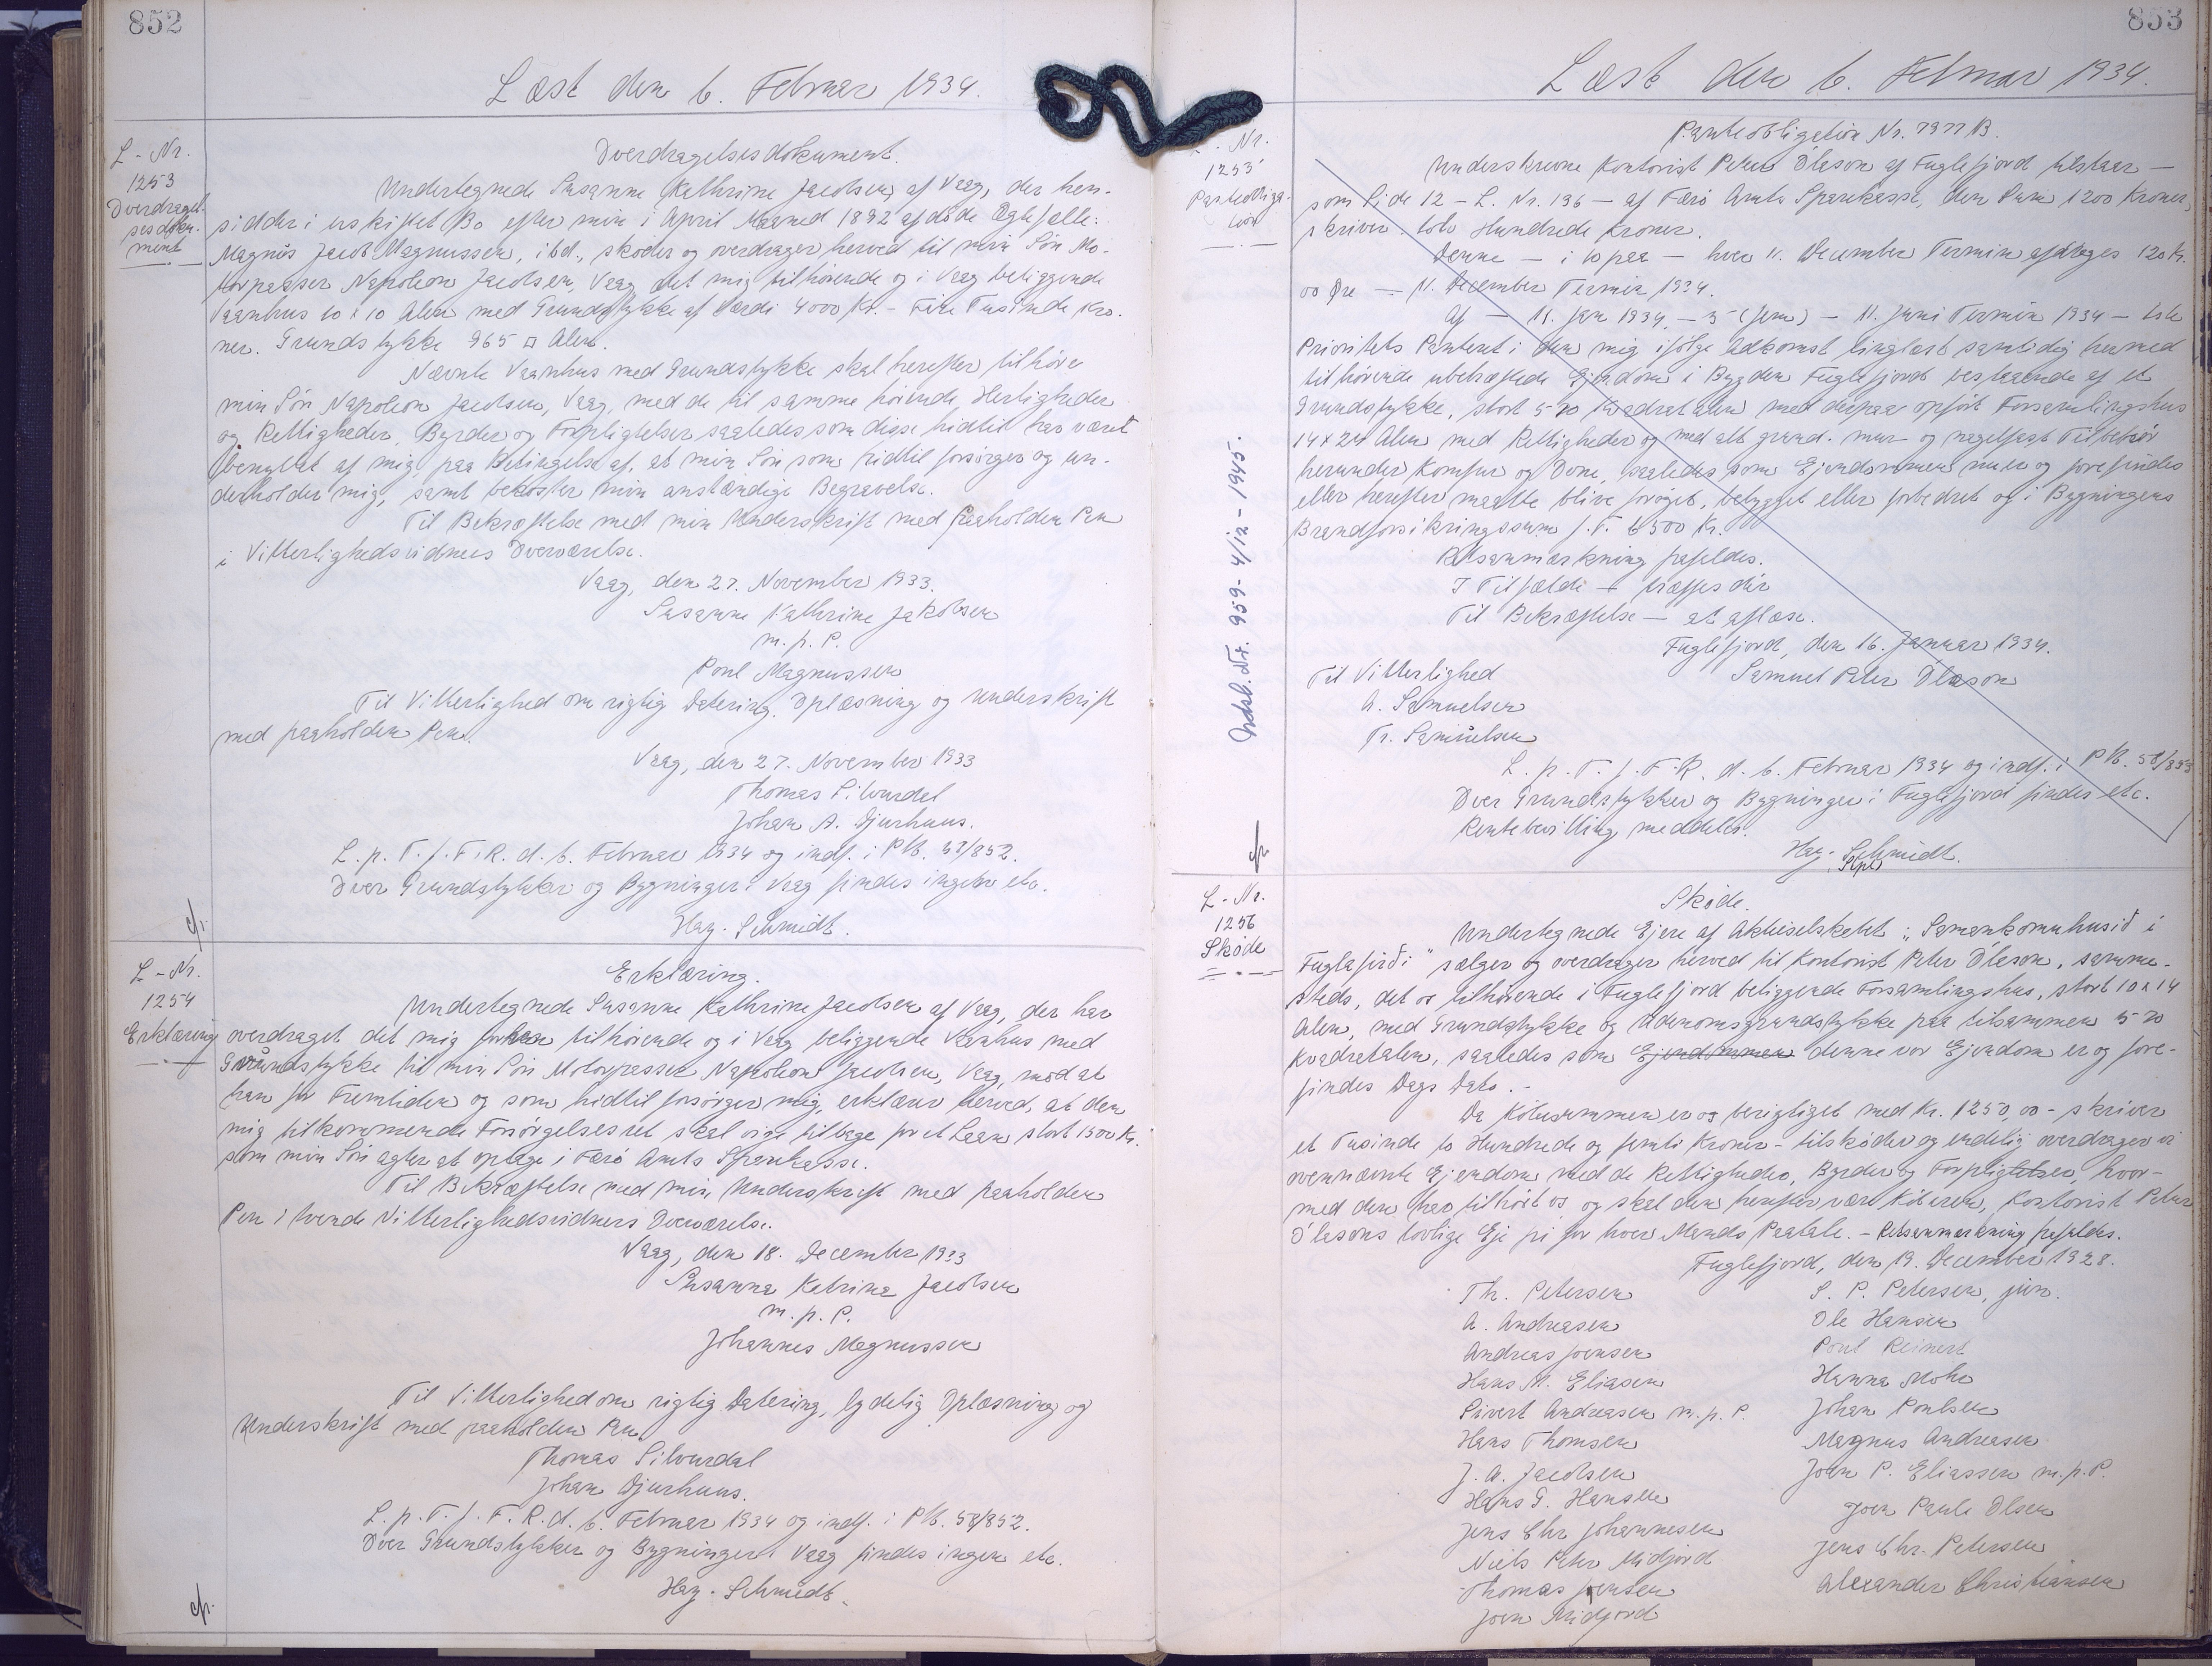 852
Læst den 6. Februar 1934.
L-Nr.
1253
Overdragel-
sesdoku-
ment
Overdragelsesdokument.
Undertegnede Susanne Kathrine Jacobsen af Vaag, der hen-
sidder i uskiftet Bo efter min i April Maaned 1892 afdöde Ægtefælle:
Magnus Jacob Magnussen, ibd., sköder og overdrager herved til min Sön Mo-
torpasser Napoleon Jacobsen, Vaag det mig tilhörende og i Vaag beliggende
Vaanhus 10 x 10 Alen med Grundstykke af Værdi 4000 Kr. - Fire Tusinde Kro-
ner. Grundstykke 965 □ Alen.
Nævnte Vaanhus med Grundstykke skal herefter tilhöre
min Sön Napoleon Jacobsen, Vaag, med de til samme hörende Herligheder
og Rettigheder, Byrder og Forpligtelser saaledes som disse hidtil har været
benyttet af mig, paa Betingelse af, at min Sön som hidtil forsörger og un-
derholder mig, samt bekoster min anstændige Begravelse.
Til Bekræftelse med min Underskrift med paaholden Pen
i Vitterlighedsvidners Overværelse.
Vaag, den 27. November 1933.
Susanne Kathrine Jakobsen
m. p. P.
Poul Magnussen
Til Vitterlighed om rigtig Datering, Oplæsning og Underskrift
med paaholden Pen.
Vaag, den 27. November 1933
Thomas Silvurdal
Johan A. Djurhuus.
L. p. T. f. F. R. d. 6. Februar 1934 og indf. i PB. 58/852.
Over Grundstykker og Bygninger i Vaag findes ingen etc.
Hay-Schmidt.
L-Nr.
1254
Erklæring
Erklæring.
Undertegnede Susanne Kathrine Jacobsen af Vaag, der har
overdraget det mig forhen tilhörende og i Vaag beliggende Vaanhus med
Grundstykke til min Sön Motorpasser Napoleon Jacobsen, Vaag, mod at
han for Fremtiden og som hidtil forsörger mig, erklærer herved, at den
mig tilkommende Forsörgelsesret skal vige tilbage for et Laan stort 1500 Kr.
som min Sön agter at optage i Færö Amts Sparekasse.
Til Bekræftelse med min Underskrift med paaholden
Pen i tvende Vitterlighedsvidners Overværelse.
Vaag, den 18. December 1933
Susanna Katrina Jacobsen
m. p. P.
Johannes Magnussen
Til Vitterlighed om rigtig Datering, lydelig Oplæsning og
Underskrift med paaholden Pen.
Thomas Silvurdal
Johan Djurhuus.
L. p. T. f. F. R. d. 6. Februar 1934 og indf. i PB. 58/852.
Over Grundstykker og Bygninger i Vaag findes ingen etc.
Hay-Schmidt.
853
Læst den 6. Februar 1934.
Nr.
1255
Panteobliga-
tion
Udsl. Nr. 959 - 4/12 - 1945.
Panteobligation Nr. 7977 B.
Underskrevne Kontorist Peter Óleson af Fuglefjord tilstaar —
som Side 12 - L. Nr. 196 — af Færö Amts Sparekasse, den Sum 1200 Kroner,
skriver tolv Hundrede Kroner.
Denne — i 10 paa — hver 11. December Termin afdrages 120 Kr.
00 Öre — 11. December Termin 1934.
Af — 11. Jan 1934 — 5 (fem) — 11. Juni Termin 1934 — 1ste
Prioritets Panteret i den mig ifölge Adkomst tinglæst samtidig hermed
tilhörende ubehæftede Ejendom i Bygden Fuglefjord bestaaende af et
Grundstykke, stort 570 Kvadratalen med derpaa opfört Forsamlingshus
14 x 24 Alen med Rettigheder og med alt grund- mur- og nagelfast Tilbehör
herunder Komfur og Ovne, saaledes som Ejendommen nu er og forefindes
eller herefter maatte blive foröget, bebygget eller forbedret og i Bygningens
Brandforsikringssum f. T. 6500 Kr.
Retsanmærkning frafaldes.
I Tilfælde — træffes dér
Til Bekræftelse — at aflæse.
Fuglefjord, den 16. Januar 1934.
Til Vitterlighed
Samuel Peter Óleson
A. Samuelsen
Tr. Samuelsen
L. p. T. f. F. R. d. 6. Februar 1934 og indf. i PB. 58/853
Over Grundstykker og Bygninger i Fuglefjord findes etc.
Rentebevilling meddeles.
Hay-Schmidt.
L-Nr.
1256
Sköde
Sköde.
Undertegnede Ejere af Aktieselskabet: „Samankomuhusið i
Fuglafirði" sælger og overdrager herved til Kontorist Peter Óleson, samme-
steds, det os tilhörende i Fuglefjord beliggende Forsamlingshus, stort 10 x 14
Alen, med Grundstykke og Udenomsgrundstykke paa tilsammen 570
Kvadratalen, saaledes som Ejendommen denne vor Ejendom er og fore-
findes Dags Dato. -
Da Köbesummen er os berigtiget med Kr. 1250,00 - skriver
et Tusinde to Hundrede og femti Kroner - tilsköder og endelig overdrager vi
ovennævnte Ejendom med de Rettigheder, Byrder og Forpligtelser, hvor-
med den har tilhört os og skal den herefter være Köberen, Kontorist Peter
Ólesons lovlige Eje fri for hver Mands Paatale. - Retsanmærkning frafaldes.
Fuglefjord, den 19. December 1928.
Th. Petersen
S. P. Petersen, jun.
A. Andreasen
Ole Hansen
Andreas Joensen
Poul Reinert
Hans M. Eliasen
Hanna Mohr
Sivert Andreasen m. p. P.
Johan Poulsen
Hans Thomsen
Magnus Andreasen
J. A. Jacobsen
Joen P. Eliassen m. p. P.
Hans G. Hansen
Joen Pauli Olsen
Jens Chr Johannesen
Jens Chr. Petersen
Niels Peter Midjord
Alexander Christiansen
Thomas Joensen
Joen Midjord